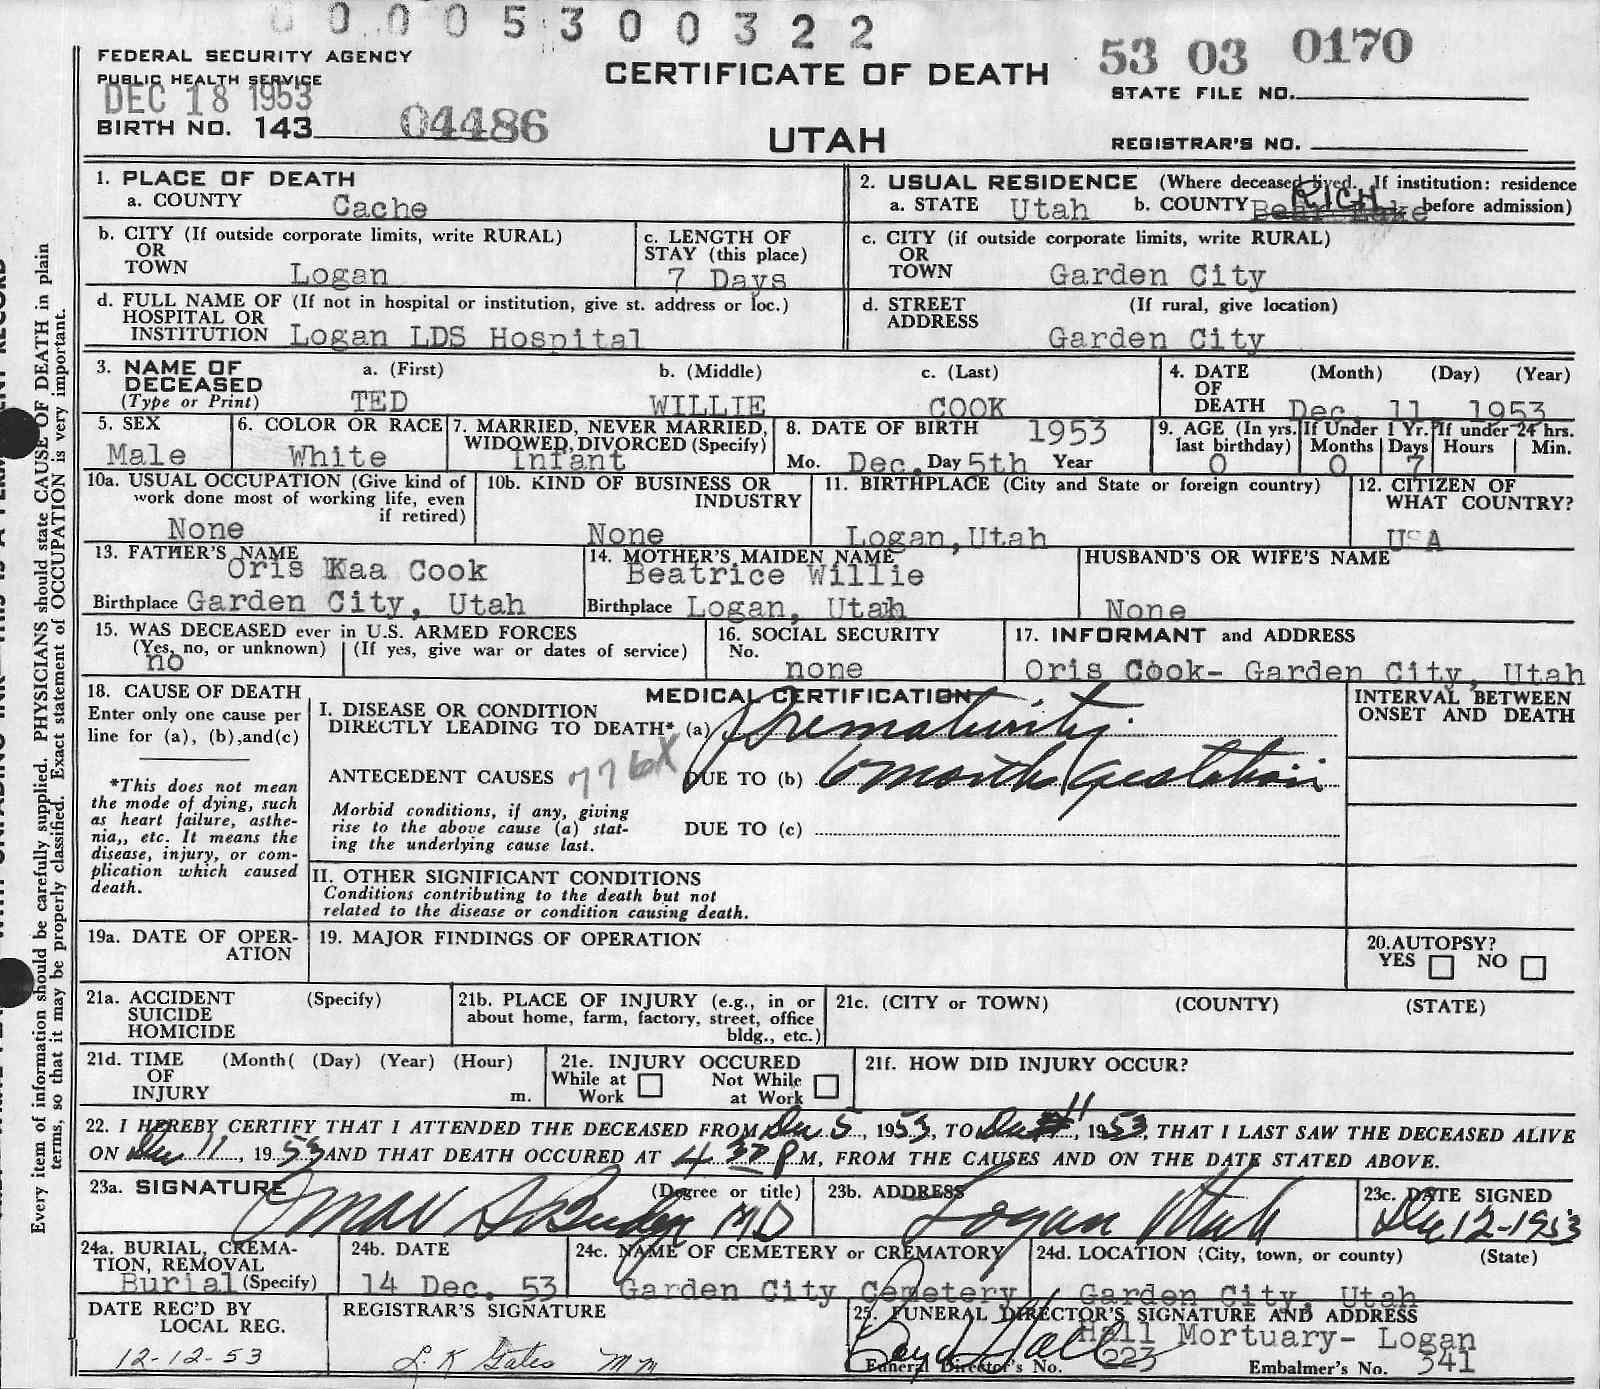 0 0 0 0 5 3 0 0 3 2 2
FEDERAL SECURITY AGENCY
PUBLIC HEALTH SERVICE
DEC 18 1953
BIRTH NO. 143 04486
CERTIFICATE OF DEATH
UTAH
53 03 0170
STATE FILE NO.
REGISTRAR'S NO.
1. PLACE OF DEATH
a. COUNTY Cache
2. USUAL RESIDENCE (Where deceased lived. If institution: residence before admission)
a. STATE Utah b. COUNTY Bear Lake RICH
b. CITY (If outside corporate limits, write RURAL)
OR
TOWN Logan
c. LENGTH OF
STAY (this place)
7 Days
c. CITY (if outside corporate limits, write RURAL)
OR
TOWN Garden City
d. FULL NAME OF (If not in hospital or institution, give st. address or loc.)
HOSPITAL OR
INSTITUTION Logan LDS Hospital
d. STREET (If rural, give location)
ADDRESS Garden City
3. NAME OF a. (First) b. (Middle) c. (Last)
DECEASED
(Type or Print) TED WILLIE COOK
4. DATE (Month) (Day) (Year)
OF
DEATH Dec. 11 1953
5. SEX
Male
6. COLOR OR RACE
White
7. MARRIED, NEVER MARRIED,
WIDOWED, DIVORCED (Specify)
Infant
8. DATE OF BIRTH 1953
Mo. Dec. Day 5th Year
9. AGE (In yrs. last birthday) 0
If Under 1 Yr. Months 0 Days 7
If under 24 hrs. Hours Min.
10a. USUAL OCCUPATION (Give kind of
work done most of working life, even
if retired)
None
10b. KIND OF BUSINESS OR
INDUSTRY
None
11. BIRTHPLACE (City and State or foreign country)
Logan,Utah
12. CITIZEN OF
WHAT COUNTRY?
USA
13. FATHER'S NAME
Oris Kaa Cook
Birthplace Garden City, Utah
14. MOTHER'S MAIDEN NAME
Beatrice Willie
Birthplace Logan, Utah
HUSBAND'S OR WIFE'S NAME
None
15. WAS DECEASED ever in U.S. ARMED FORCES
(Yes, no, or unknown) (If yes, give war or dates of service)
no
16. SOCIAL SECURITY
No.
none
17. INFORMANT and ADDRESS
Oris Cook- Garden City, Utah
18. CAUSE OF DEATH
Enter only one cause per
line for (a), (b),and(c)
*This does not mean
the mode of dying, such
as heart failure, asthe-
nia,, etc. It means the
disease, injury, or com-
plication which caused
death.
MEDICAL CERTIFICATION
I. DISEASE OR CONDITION
DIRECTLY LEADING TO DEATH* (a) Prematurity
ANTECEDENT CAUSES 776X DUE TO (b) 6 months gestation
Morbid conditions, if any, giving
rise to the above cause (a) stat-
ing the underlying cause last.
DUE TO (c)
II. OTHER SIGNIFICANT CONDITIONS
Conditions contributing to the death but not
related to the disease or condition causing death.
INTERVAL BETWEEN
ONSET AND DEATH
19a. DATE OF OPER-
ATION
19. MAJOR FINDINGS OF OPERATION
20.AUTOPSY?
YES NO
21a. ACCIDENT (Specify)
SUICIDE
HOMICIDE
21b. PLACE OF INJURY (e.g., in or
about home, farm, factory, street, office
bldg., etc.)
21c. (CITY or TOWN) (COUNTY) (STATE)
21d. TIME (Month( (Day) (Year) (Hour)
OF
INJURY m.
21e. INJURY OCCURED
While at Work Not While at Work
21f. HOW DID INJURY OCCUR?
22. I HEREBY CERTIFY THAT I ATTENDED THE DECEASED FROM Dec 5, 1953, TO Dec 11, 1953, THAT I LAST SAW THE DECEASED ALIVE
ON Dec 11, 1953 AND THAT DEATH OCCURED AT 4 30 P M, FROM THE CAUSES AND ON THE DATE STATED ABOVE.
23a. SIGNATURE (Degree or title)
Omar S Budge MD
23b. ADDRESS
Logan Utah
23c. DATE SIGNED
Dec 12-1953
24a. BURIAL, CREMA-
TION, REMOVAL
Burial (Specify)
24b. DATE
14 Dec. 53
24c. NAME OF CEMETERY OR CREMATORY
Garden City Cemetery
24d. LOCATION (City, town, or county) (State)
Garden City, Utah
DATE REC'D BY
LOCAL REG.
12-12-53
REGISTRAR'S SIGNATURE
L. K Gates MM
25. FUNERAL DIRECTOR'S SIGNATURE AND ADDRESS
Boyd Hall Hall Mortuary- Logan
Funeral Director's No. 223 Embalmer's No. 341
Every item of information should be carefully supplied. PHYSICIANS should state CAUSE OF DEATH in plain
terms, so that it may be properly classified. Exact statement of OCCUPATION is very important.